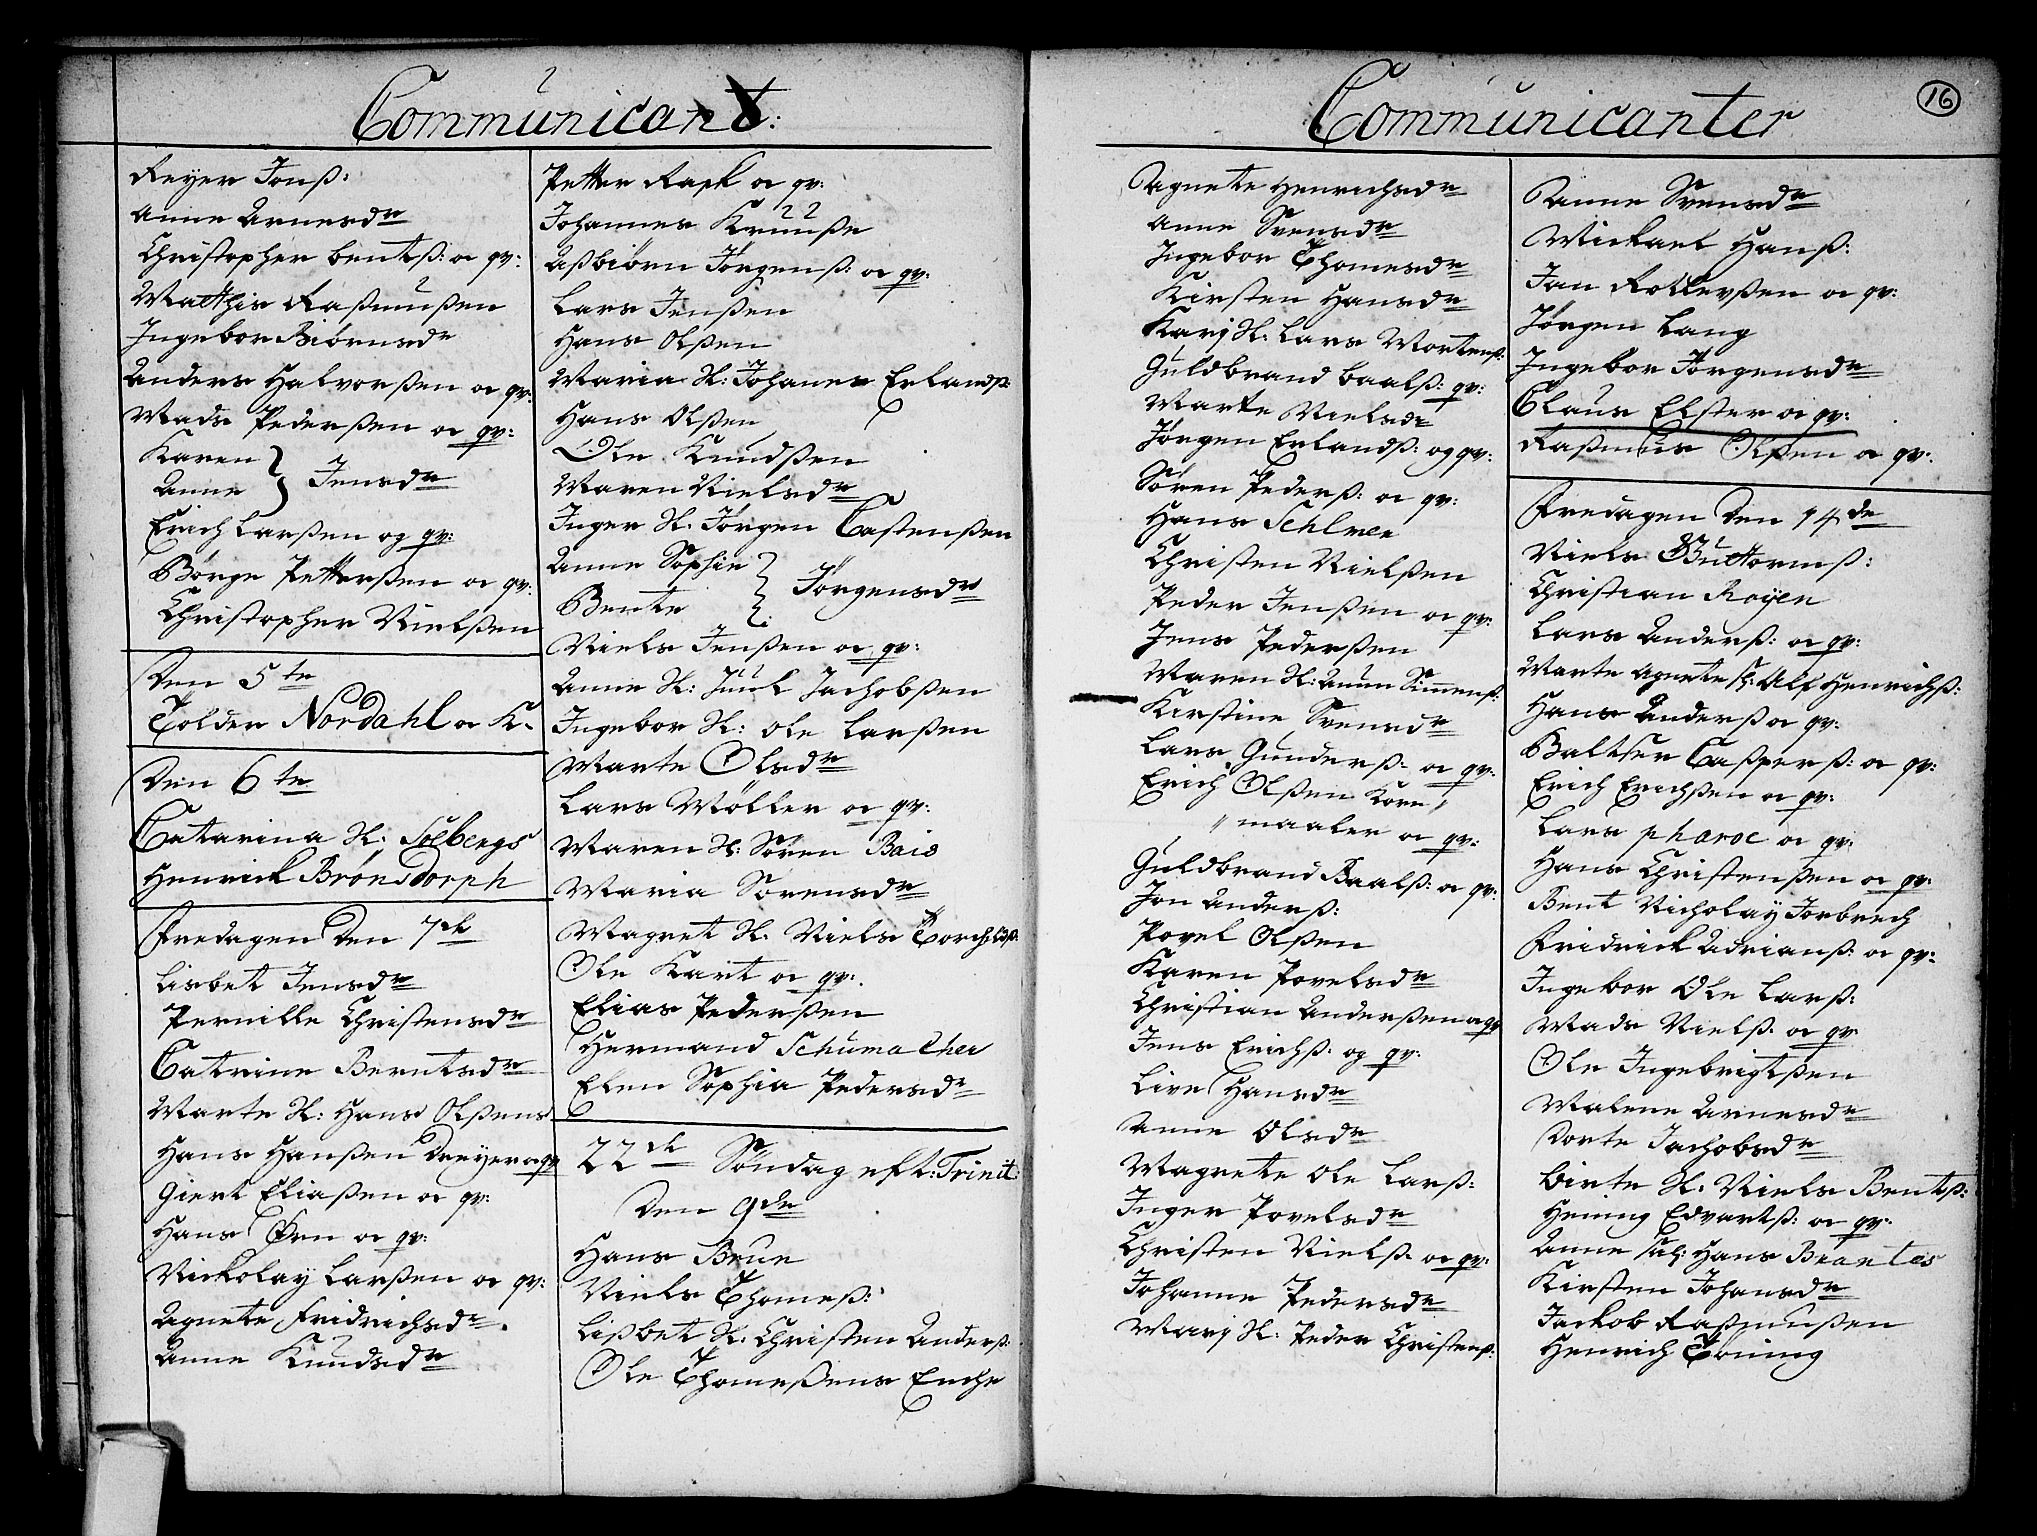 Communicant:
Reyer Jonß:
Anne Arnesdr
Christopher bentß: oc qv:
Matthis Raßmußen
Ingebor Biørnsdr
Anders Halvorßen oc qv:
Mads Pederßen oc qv:
Karen
Anne } Jensdr
Erich Larßen og qv:
Børge Petterßen oc qv:
Christopher Nielßen
Den 5te
Tolder Nordahl oc K.
Den 6te
Catarina H: Solbergs
Henrick Brønsdorph
Fredagen Den 7de
Lisbet Jensdr
Pernille Christensdr
Catrine Berntsdr
Marte H: Hans Olßens
Hans Hanßen Dreyer oc qv
Giert Eliaßen oc qv:
Hans Fren oc qv:
Nickolay Larßen oc qv:
Agnete Fridrichsdr.
Anne Knudsdr
Petter Rask oc qv:
Johannes Kruuße
Aßbiørn Jørgenß: oc qv:
Lars Jenßen
Hans Olßen
Maria H: Johanes Erlandß:
Hans Olßen
Ole Knudßen
Maren Nielsdr
Inger H. Jørgen Castenßen
Anne Sophie
Bente } Jørgensdr
Niels Jenßen oc qv:
Anne H: Juul Jachobßen
Ingebor H: Ole Larßen
Marte Olsdr
Lars Møller oc qv:
Maren H: Søren Bais
Maria Sørensdr
Magret H. Niels Torchildß:
Ole Kart oc qv:
Elias Pederßen
Hermand Schumacher
Elen Sophia Pedersdr
22de Søndag eft: Trinit:
Den 9de
Hans Brun
Niels Thomeß:
Lißbet H: Christen Anderß:
Ole Thomeßens Enche
Communicanter
16
Agnete Henrichsdr
Anne Svensdr
Ingebor Thomesdr
Kirsten Hansdr
Kari H: Lars Mortenß:
Guldbrand Baalß: qv:
Marte Nielsdr
Jørgen Erlandß: og qv:
Søren Pederß: oc qv:
Hans Sehlmer
Christen Nielßen
Peder Jenßen oc qv:
Jens Pederßen
Maren H: Simenß:
Kirstine Svensdr
Lars Gunderß. oc qv:
Erich Olßen Korn
maaler oc qv:
Guldbrand Baalß: oc qv:
Jon Anderß:
Povel Olßen
Karen Povelsdr
Christian Anderßen oc qv
Jens Erichß. og qv:
Live Hansdr
Anne Olsdr
Magrete Ole Larß:
Inger Povelsdr
Christen Nielß. oc qv:
Johanne Pedersdr
Mari H: Peder Christenß:
Anne Svensdr
Mickael Hanß:
Jan Rollevßen oc qv:
Jørgen Lang
Ingebor Jørgensdr
Claus Elster oc qv:
Raßmus Olßen oc qv:
Fredagen Den 14de
Niels Guttormß:
Christian Royen
Lars Anderß: oc qv:
Marte Agnete H: Ulf Henrichß:
Hans Anderß oc qv:
Baltser Caßperß: oc qv:
Erich Erichßen oc qv:
Lars pharoe oc qv:
Hans Christenßen oc qv:
Bent Nicholay Forbrech
Fridrick Adrianß: oc qv:
Ingebor Ole Larß:
Mads Nielß. oc qv
Ole Ingebrigtßen
Malene Arnesdr
Dorte Jachobsdr
Birte H. Niels Bentß:
Hening Edvartß: oc qv:
Anne Sal: Hans Brantes
Kirsten Johansdr
Jackob Raßmußen
Henrich Toning